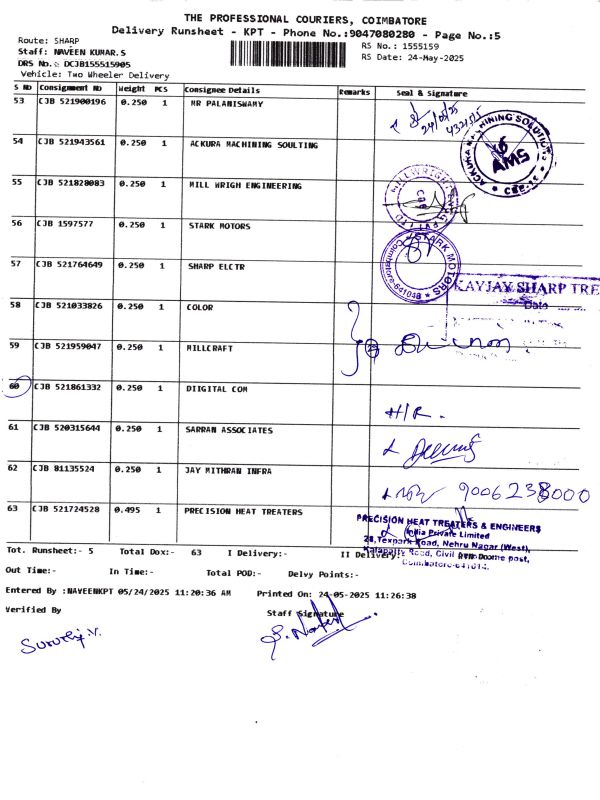 THE PROFESSIONAL COURIERS, COIMBATORE
Delivery Runsheet - KPT - Phone No.:9047080280 - Page No.:5
Route: SHARP
RS No.: 1555159
Staff: NAVEEN KUMAR.S
RS Date: 24-May-2025
DRS No.: DCJB155515905
Vehicle: Two Wheeler Delivery
S No Consignment No Weight PCS Consignee Details Remarks Seal & Signature
53 CJB 521900196 0.250 1 MR PALANISWAMY
54 CJB 521943561 0.250 1 ACKURA MACHINING SOULTING
ACKURA MACHINING SOLUTIONS AMS
55 CJB 521828083 0.250 1 MILL WRIGH ENGINEERING
56 CJB 1597577 0.250 1 STARK MOTORS
STARK MOTORS Coimbatore-641048
57 CJB 521764649 0.250 1 SHARP ELCTR
KAYJAY SHARP TRE
Date
58 CJB 521033826 0.250 1 COLOR
59 CJB 521959047 0.250 1 MILLCRAFT
60 CJB 521861332 0.250 1 DIIGITAL COM
H/R.
61 CJB 520315644 0.250 1 SARRAN ASSOCIATES
62 CJB 81135524 0.250 1 JAY MITHRAN INFRA
9006238000
63 CJB 521724528 0.495 1 PRECISION HEAT TREATERS
PRECISION HEAT TREATERS & ENGINEERS
India Private Limited
28, Texpark Road, Nehru Nagar (West),
Kalapatty Road, Civil Aerodrome post,
Coimbatore-641014.
Tot. Runsheet:- 5 Total Dox:- 63 I Delivery:- II Delivery:-
Out Time:- In Time:- Total POD:- Delvy Points:-
Entered By :NAVEENKPT 05/24/2025 11:20:36 AM Printed On: 24-05-2025 11:26:38
Verified By Staff Signature